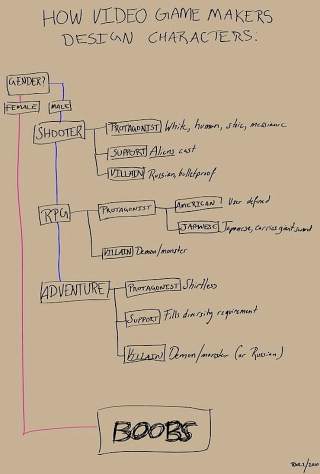 HOW VIDEO GAME MAKERS
DESIGN CHARACTERS:
GENDER?
FEMALE
MALE
SHOOTER
PROTAGONIST White, human, stoic, messianic
SUPPORT Aliens cast
VILLAIN Russian, bulletproof
RPG
PROTAGONIST
AMERICAN? User defined
JAPANESE Japanese, carries giant sword
VILLAIN Demon/monster
ADVENTURE
PROTAGONIST Shirtless
SUPPORT Fills diversity requirement
VILLAIN Demon/monster (or Russian)
BOOBS